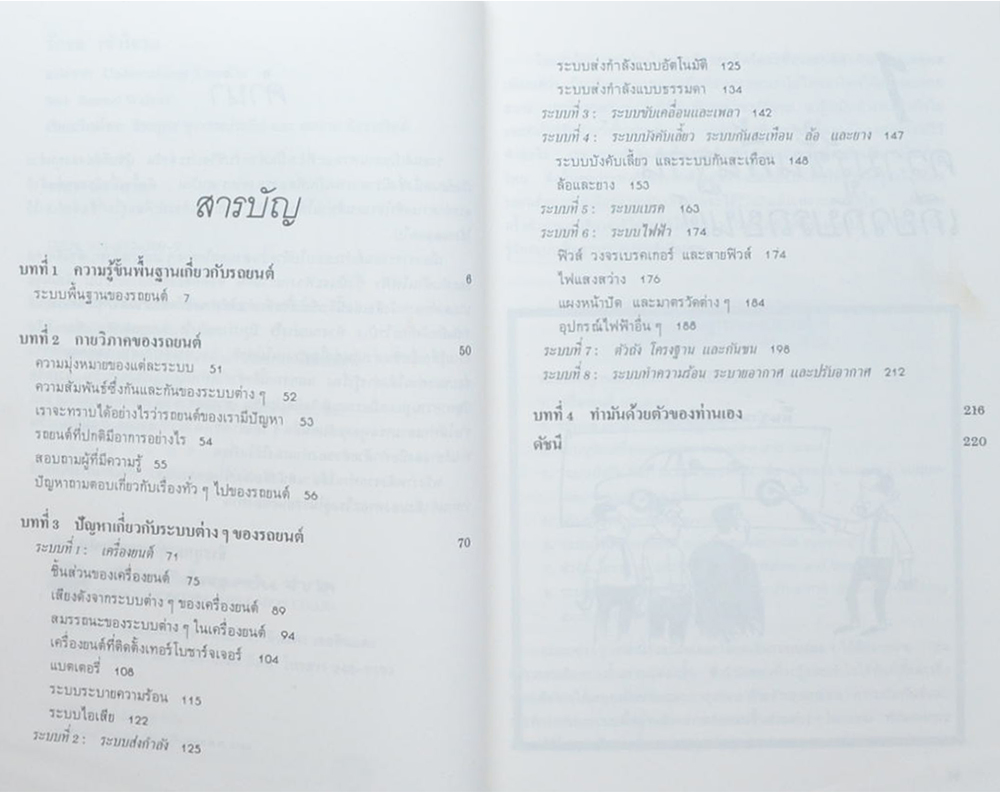 สารบัญ
บทที่ 1 ความรู้ขั้นพื้นฐานเกี่ยวกับรถยนต์ 6
ระบบพื้นฐานของรถยนต์ 7
บทที่ 2 กายวิภาคของรถยนต์ 50
ความมุ่งหมายของแต่ละระบบ 51
ความสัมพันธ์ซึ่งกันและกันของระบบต่าง ๆ 52
เราจะทราบได้อย่างไรว่ารถยนต์ของเรามีปัญหา 53
รถยนต์ที่ปกติมีอาการอย่างไร 54
สอบถามผู้ที่มีความรู้ 55
ปัญหาถามตอบเกี่ยวกับเรื่องทั่ว ๆ ไปของรถยนต์ 56
บทที่ 3 ปัญหาเกี่ยวกับระบบต่าง ๆ ของรถยนต์ 70
ระบบที่ 1 : เครื่องยนต์ 71
ชิ้นส่วนของเครื่องยนต์ 75
เสียงดังจากระบบต่าง ๆ ของเครื่องยนต์ 89
สมรรถนะของระบบต่าง ๆ ในเครื่องยนต์ 94
เครื่องยนต์ที่ติดตั้งเทอร์โบชาร์จเจอร์ 104
แบตเตอรี่ 108
ระบบระบายความร้อน 115
ระบบไอเสีย 122
ระบบที่ 2 : ระบบส่งกำลัง 125
ระบบส่งกำลังแบบอัตโนมัติ 125
ระบบส่งกำลังแบบธรรมดา 134
ระบบที่ 3 : ระบบขับเคลื่อนและเพลา 142
ระบบที่ 4 : ระบบบังคับเลี้ยว ระบบกันสะเทือน ล้อ และยาง 147
ระบบบังคับเลี้ยว และระบบกันสะเทือน 148
ล้อและยาง 153
ระบบที่ 5 : ระบบเบรค 163
ระบบที่ 6 : ระบบไฟฟ้า 174
ฟิวส์ วงจรเบรคเกอร์ และสายฟิวส์ 174
ไฟแสงสว่าง 176
แผงหน้าปัด และมาตรวัดต่าง ๆ 184
อุปกรณ์ไฟฟ้าอื่น ๆ 188
ระบบที่ 7 : ตัวถัง โครงฐาน และกันชน 198
ระบบที่ 8 : ระบบทำความร้อน ระบายอากาศ และปรับอากาศ 212
บทที่ 4 ทำมันด้วยตัวของท่านเอง 216
ดัชนี 220